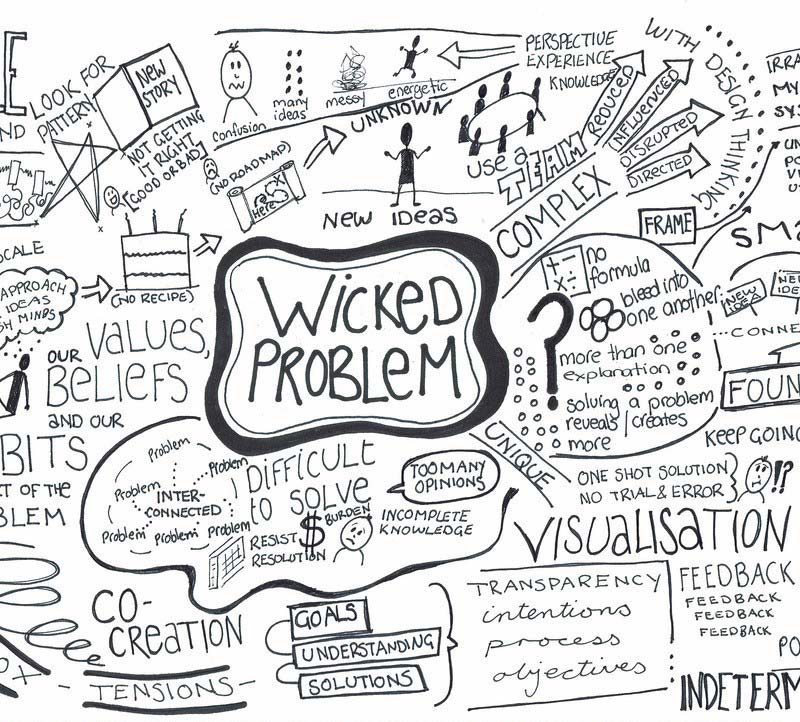 LOOK FOR
PATTERN
NEW
STORY
NOT GETTING
IT RIGHT
[GOOD OR BAD]
confusion
many
ideas
messy
energetic
PERSPECTIVE
EXPERIENCE
KNOWLEDGE
WITH DESIGN THINKING
UNKNOWN
(NO ROADMAP)
Here
X
NEW IDEAS
USE a
TEAM
COMPLEX
REDUCED
INFLUENCED
DISRUPTED
DIRECTED
FRAME
APPROACH
IDEAS
(NO RECIPE)
WICKED
PROBLEM
OUR VALUES,
BELIEFS
AND OUR
BITS
OF THE
BLEM
+ -
× ÷
no
formula
bleed into
one another
?
more than one
explanation
solving a problem
reveals/creates
more
NEW
IDEA
UNIQUE
KEEP GOING
ONE SHOT SOLUTION
NO TRIAL & ERROR
!?
Problem
Problem
Problem
Problem
Problem
Problem
INTER-
CONNECTED
DIFFICULT
to SOLVE
TOO MANY
OPINIONS
RESIST
RESOLUTION
$
BURDEN
INCOMPLETE
KNOWLEDGE
VISUALISATION
TRANSPARENCY
intentions
process
objectives
FEEDBACK
FEEDBACK
FEEDBACK
FEEDBACK
CO-
CREATION
- TENSIONS -
GOALS
UNDERSTANDING
SOLUTIONS
INDETERM